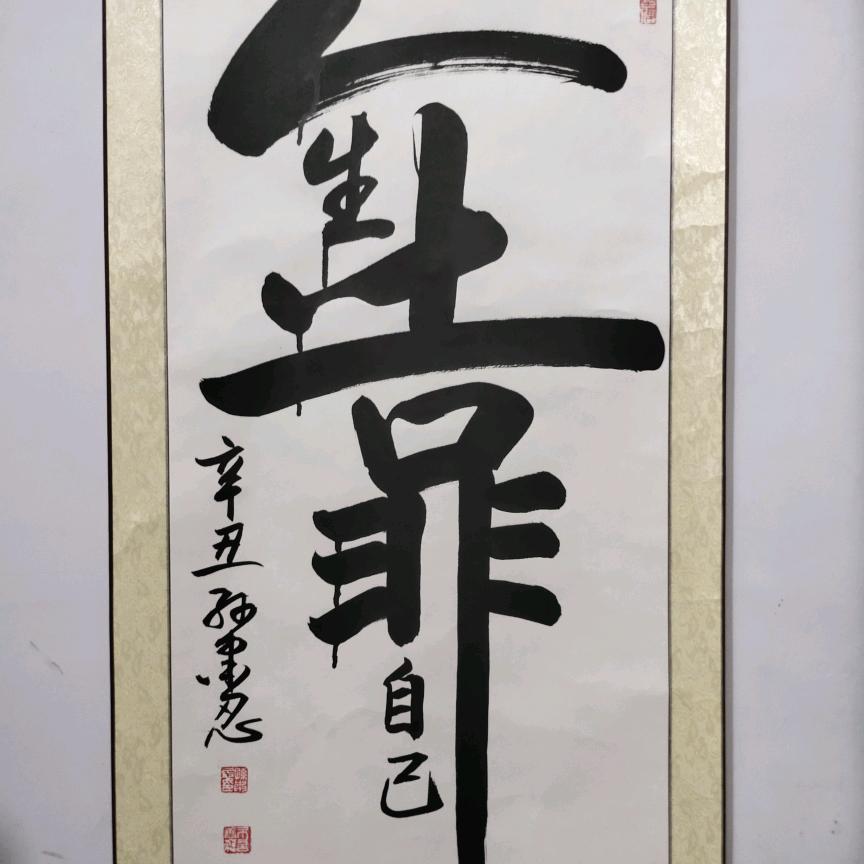 人
生
靠
自己
辛丑 孙